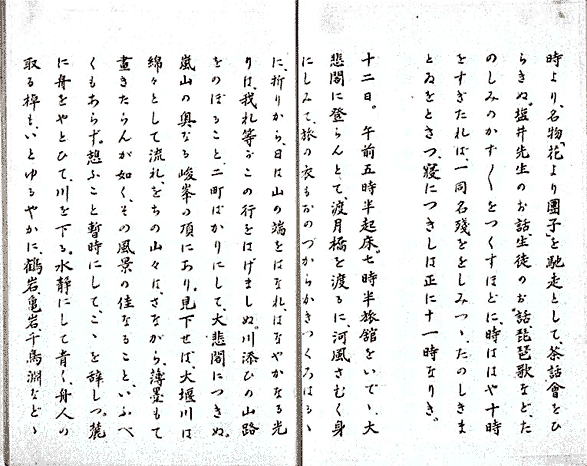 時より、名物「花より團子」を馳走として、茶話會をひ
らきぬ。塩井先生のお話生徒のお話琵琶歌など、た
のしみのかず〱をつくすほどに、時ははや十時
をすぎたれば、一同名殘ををしみつゝ、たのしきま
とゐをときつ、寝につきしは正に十一時なりき。
十二日。 午前五時半起床。七時半旅館をいでゝ、大
悲閣に登らんとて、渡月橋を渡るに、河風さむく身
にしみて、旅の衣もおのづからかきつくろはるゝ
に、折りから、日は山の端をはなれ、はなやかなる光
りは、我れ等がこの行をはげましぬ。川添ひの山路
をのぼること、二町ばかりにして、大悲閣につきぬ。
嵐山の奥なる峻峯の頂にあり。見下せば大堰川は
綿々として流れ、をちの山々は、さながら、薄墨もて
畫きたらんが如く、その風景の佳なること、いふべ
くもあらず。憩ふこと暫時にして、こゝを辞しつ。麓
に舟をやとひて、川を下る。水静にして青く、舟人の
取る棹もいとゆるやかに、鶴岩、亀岩、千鳥淵などゝ